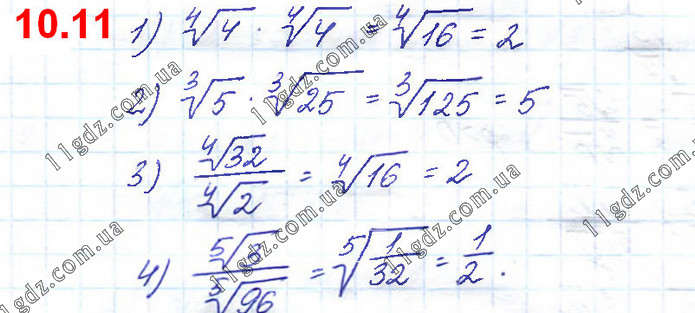 10.11
1) ∜4 · ∜4 = ∜16 = 2
2) ∛5 · ∛25 = ∛125 = 5
3) ∜32 / ∜2 = ∜16 = 2
4) ⁵√3 / ⁵√96 = ⁵√(1/32) = 1/2.
11gdz.com.ua
11gdz.com.ua
11gdz.com.ua
11gdz.com.ua
11gdz.com.ua
11gdz.com.ua